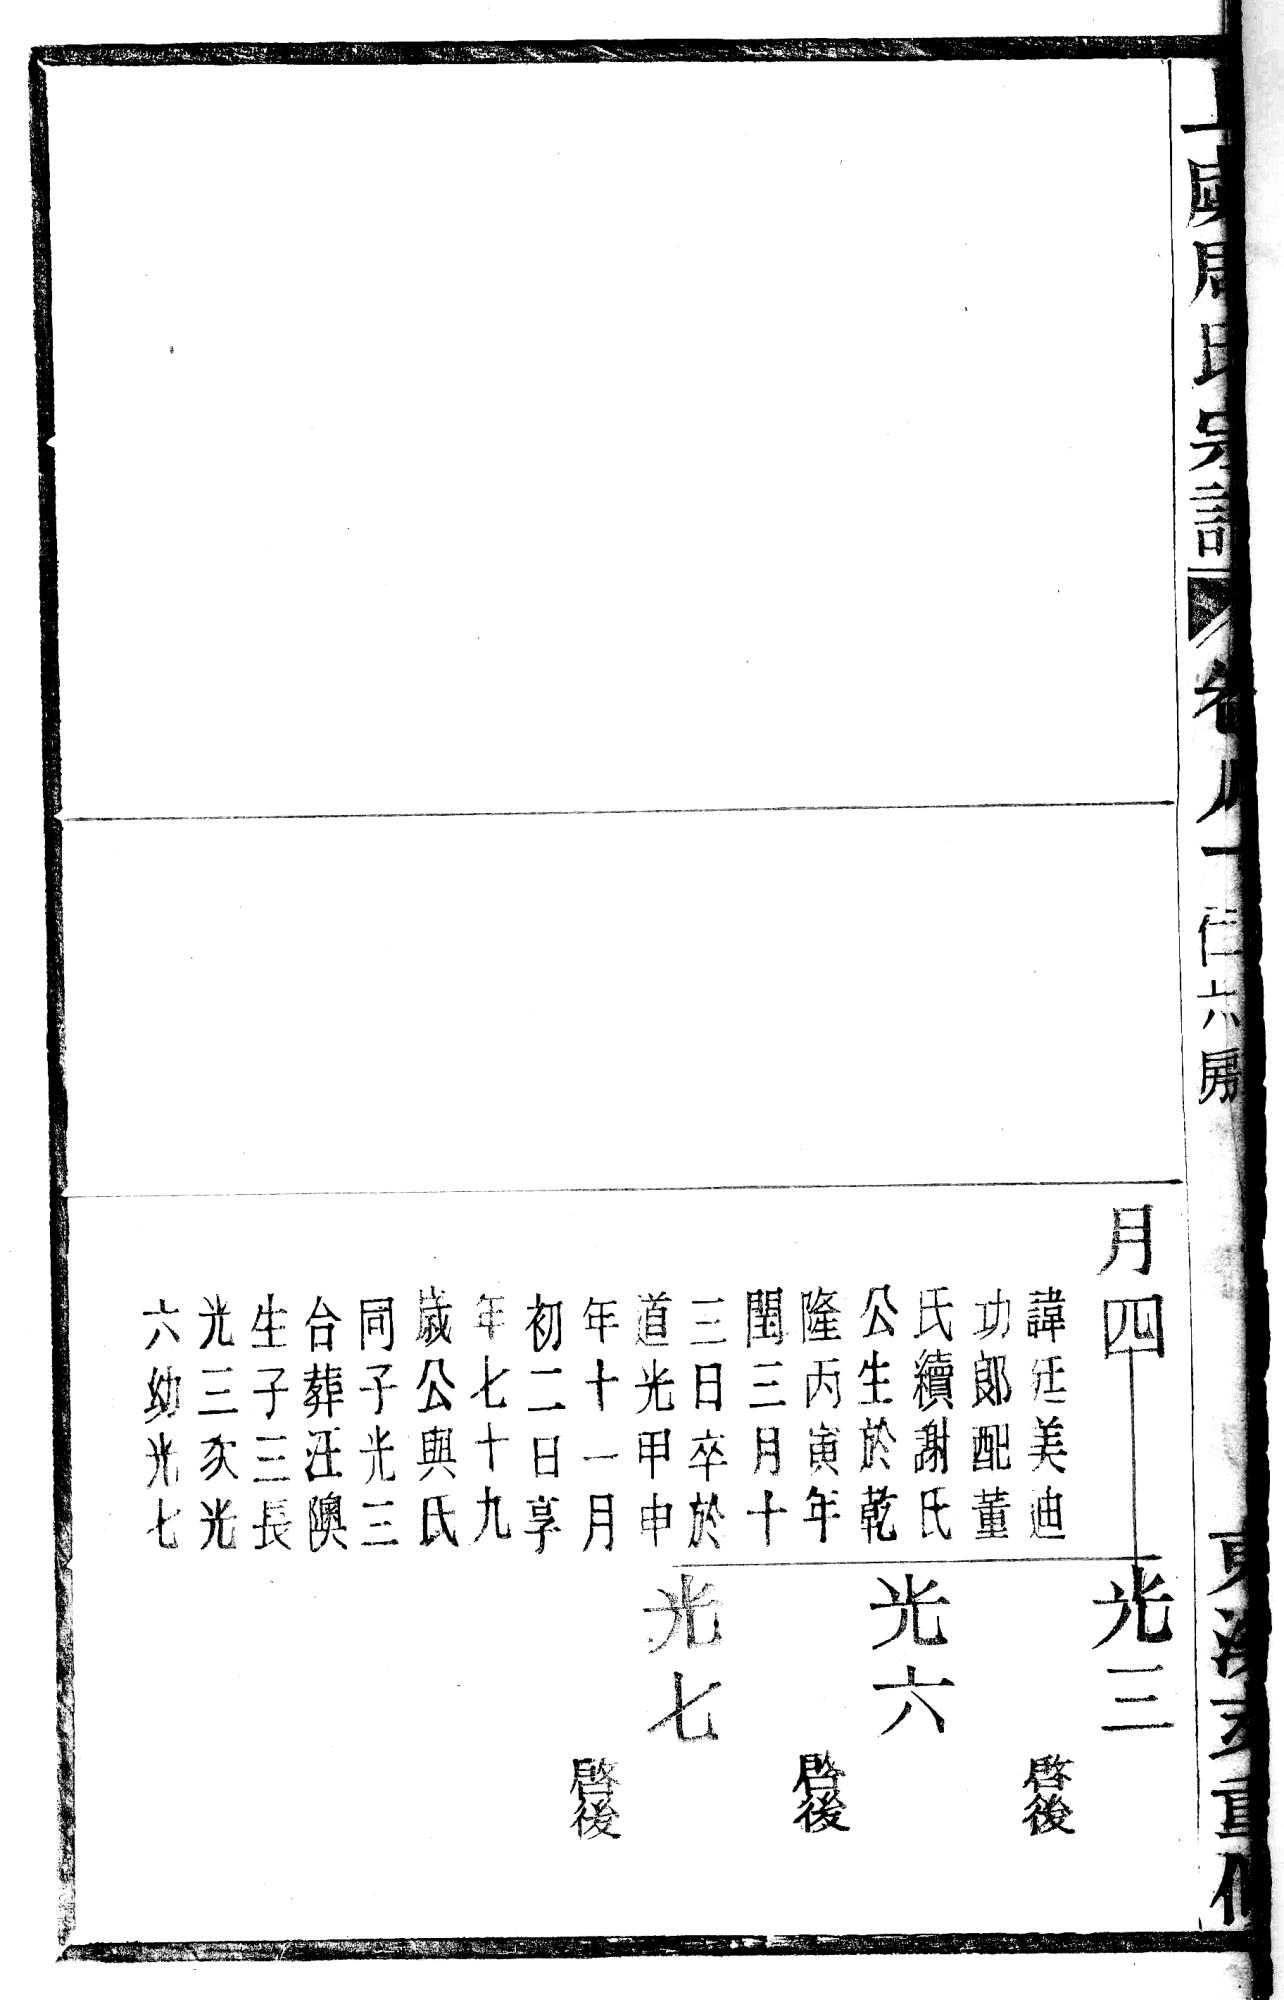 周氏宗譜
卷
仁六房
重修
月四
諱廷美迪
功郎配董
氏續謝氏
公生於乾
隆丙寅年
閏三月十
三日卒於
道光甲申
年十一月
初二日享
年七十九
歲公與氏
同子光三
台葬汪隩
生子三長
光三次光
六幼光七
光三
啓後
光六
啓後
光七
啓後